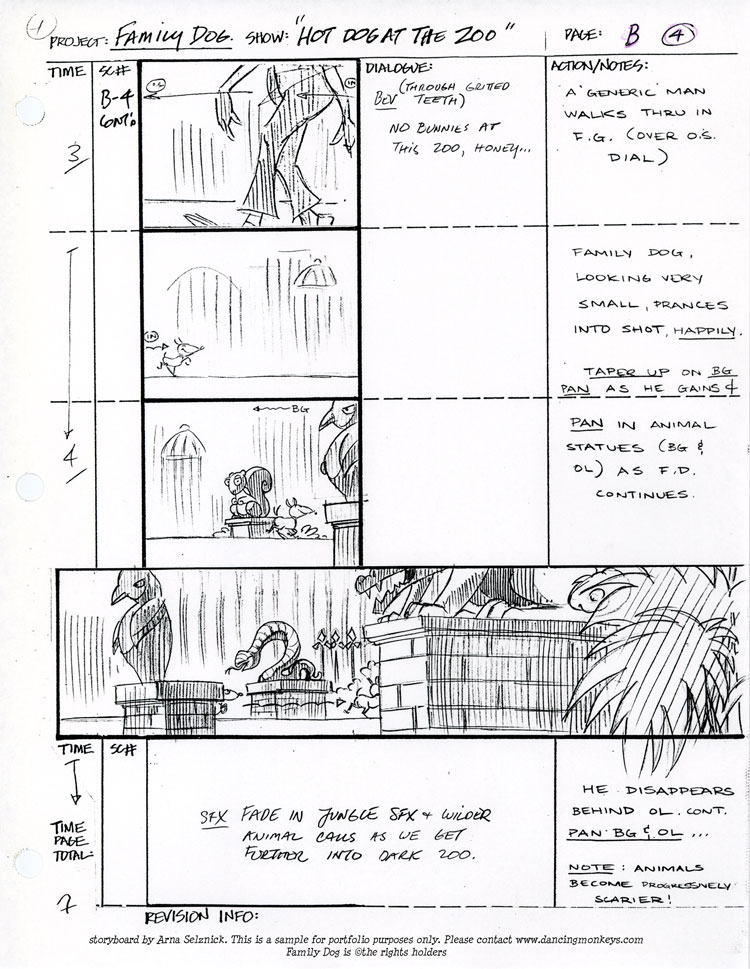 1
PROJECT: FAMILY DOG. SHOW: "HOT DOG AT THE ZOO" PAGE: B 4
TIME SC# DIALOGUE: ACTION/NOTES:
B-4
CONT'D
3
IN
BEV (THROUGH GRITTED
TEETH)
NO BUNNIES AT
THIS ZOO, HONEY...
A 'GENERIC' MAN
WALKS THRU IN
F.G. (OVER O.S.
DIAL)
IN
FAMILY DOG,
LOOKING VERY
SMALL, PRANCES
INTO SHOT, HAPPILY.
TAPER UP ON BG
PAN AS HE GAINS &
BG
4
PAN IN ANIMAL
STATUES (BG &
OL) AS F.D.
CONTINUES.
TIME SC#
TIME
PAGE
TOTAL:
7
SFX FADE IN JUNGLE SFX + WILDER
ANIMAL CALLS AS WE GET
FURTHER INTO DARK ZOO.
HE DISAPPEARS
BEHIND OL. CONT.
PAN BG & OL ...
NOTE: ANIMALS
BECOME PROGRESSIVELY
SCARIER!
REVISION INFO:
storyboard by Arna Selznick. This is a sample for portfolio purposes only. Please contact www.dancingmonkeys.com
Family Dog is ©the rights holders